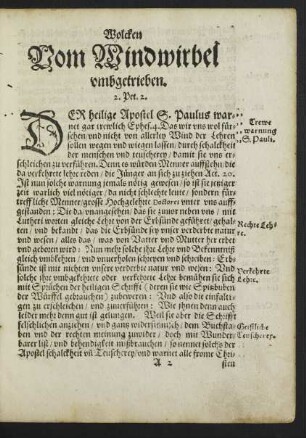 Wolcken
Vom Windwirbel
vmbgetrieben.
2. Pet. 2.
DER heilige Apostel S. Paulus war-
net gar trewlich Ephes. 4. Das wir vns wol für-
sehen vnd nicht von allerley Wind der Lehren
sollen wegen vnd wiegen lassen / durch schalckheit
der menschen vnd teuscherey / damit sie vns er-
schleichen zu verführen. Denn es würden Menner auffstehn / die
da verkehrete lehre reden / die Jünger an sich zu ziehen Act. 20.
Ist nun solche warnung jemals nötig gewesen / so ist sie jetziger
zeit warlich viel nötiger / da nicht schlechte leute / sondern für-
treffliche Menner / grosse Hochgelehrte Doctores vnter vns auff-
gestanden / Die da vorgeben / das sie zuuor neben vns / mit
Lutheri worten gleiche Lehre von der Erbsünde geführet / gehal-
ten / vnd bekandt / das die Erbsünde sey vnser verderbte natur
vnd wesen / alles das / was von Vatter vnd Mutter her erbet
vnd geboren wird: Nun mehr solche ihre Lehr vnd Bekenntniß
gleich vmbkehren / vnd vnuerholen schreyen vnd schreiben / Erb-
sünde ist mit nichten vnser verderbte natur vnd wesen: Vnd
solche ihre vmbgekehrte oder verkehrte Lehre bemühen sie sich
mit Sprüchen der heiligen Schrifft (deren sie wie Spitzbuben
der Würffel gebrauchen) zubeweren: Vnd also die einfalti-
gen zu erschleichen / vnd zuuerführen: Wie ihnen denn auch
leider mehr denn gut ist gelungen. Weil sie aber die Schrifft
felschlich anziehen / vnd gantz widersinnisch / dem Buchsta-
ben vnd der rechten meinung zuwider / doch mit Wunder-
barer list / vnd behendigkeit mißbrauchen / so nennet solchs der
Apostel schalckheit vñ Teuscherey / vnd warnet alle frome Chri-
A 2 sten
Trewe
warnung
S. Pauli.
Rechte Leh-
re.
Verkehrte
Lehre.
Geistliche
Teuscherey.